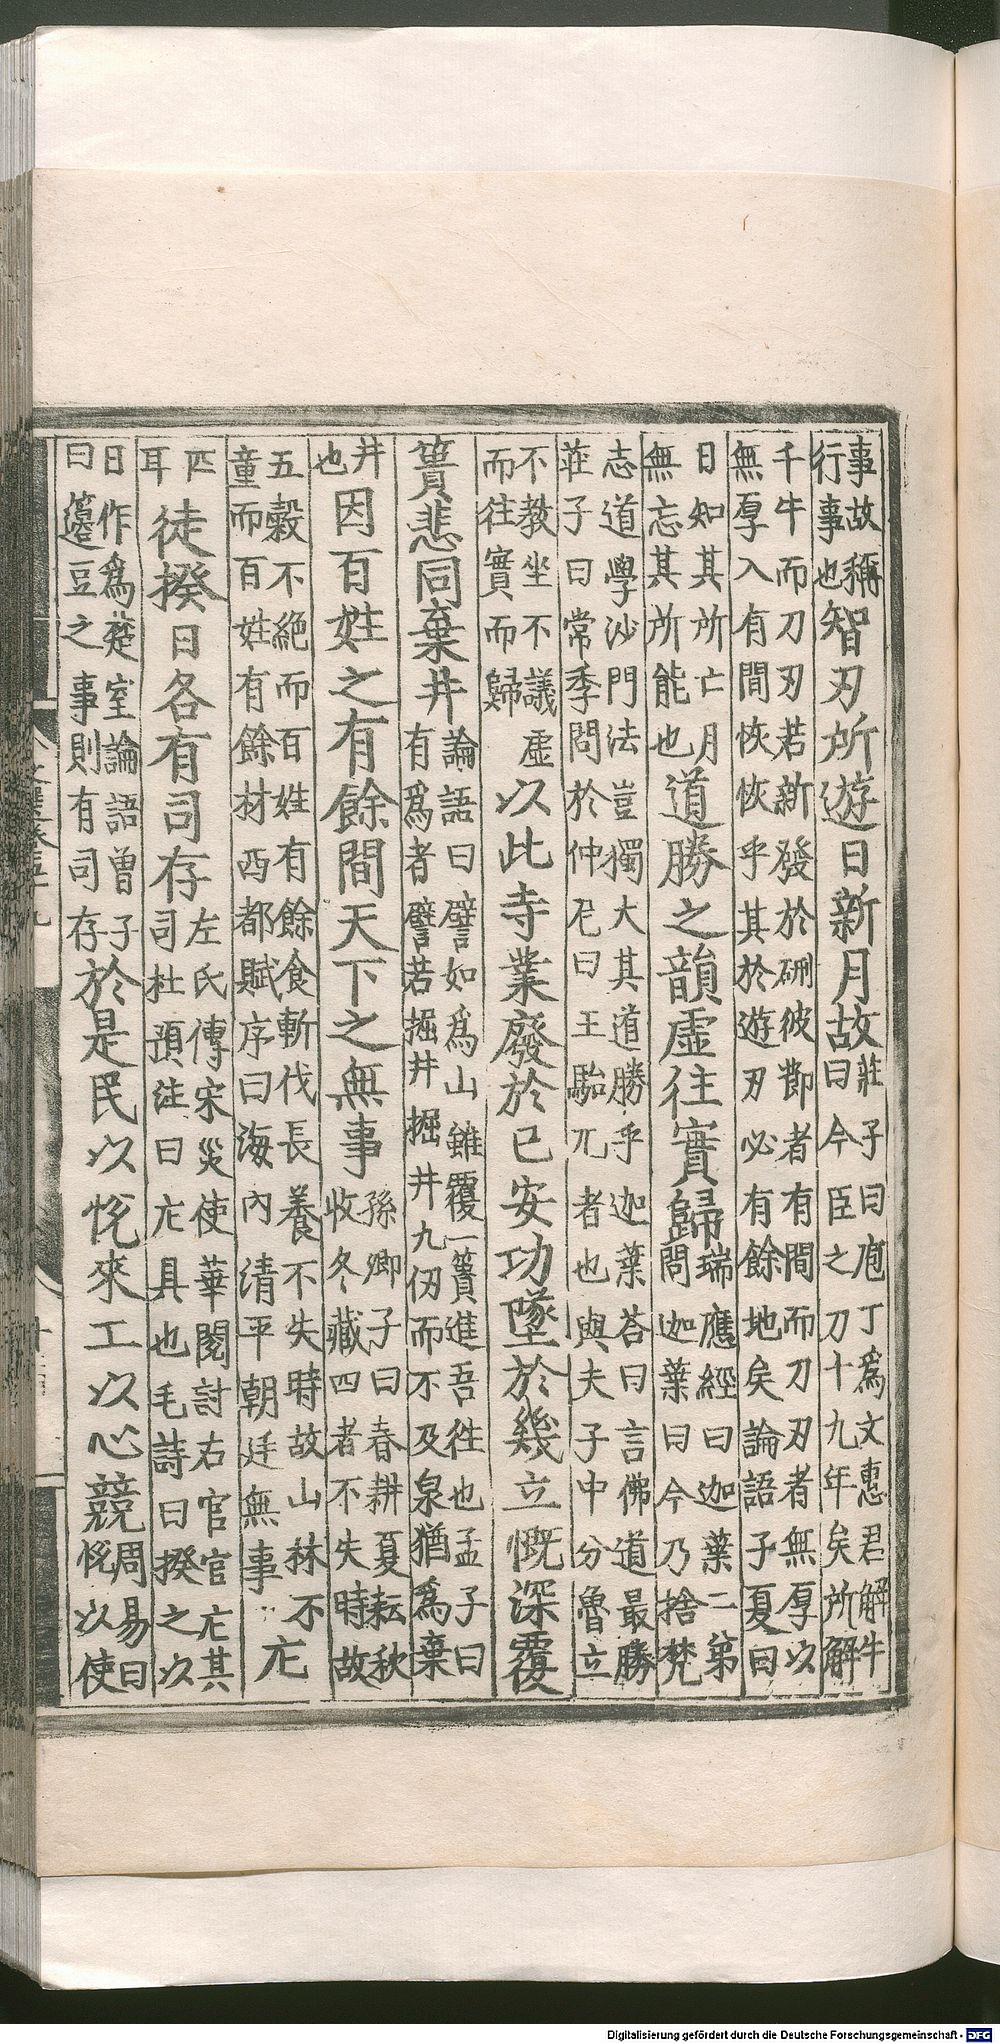 事故稱行事也智刃所遊日新月故莊子曰庖丁為文惠君解牛曰今臣之刀十九年矣所解
千牛而刀刃若新發於硎彼節者有間而刀刃者無厚以無厚入有間恢恢乎其於遊刃必有餘地矣論語子夏曰
日知其所亡月無忘其所能也道勝之韻虛往實歸瑞應經曰迦葉二弟問迦葉曰今乃捨梵
志道學沙門法豈獨大其道勝乎迦葉荅曰言佛道最勝莊子曰常季問於仲尼曰王駘兀者也與夫子中分魯立
不教坐不議虛而往實而歸以此寺業廢於已安功墜於幾立慨深覆
簣悲同棄井論語曰譬如為山雖覆一簣進吾徃也孟子曰有為者譬若掘井掘井九仞而不及泉猶為棄
井也因百姓之有餘間天下之無事孫卿子曰春耕夏耘秋收冬藏四者不失時故
五穀不絕而百姓有餘食斬伐長養不失時故山林不童而百姓有餘材西都賦序曰海內清平朝廷無事庀
匹耳徒揆日各有司存左氏傳宋災使華閱討右官官庀其司杜預注曰庀具也毛詩曰揆之以
日作為楚室論語曾子曰籩豆之事則有司存於是民以恱來工以心競周易曰恱以使
文選卷五十九
Digitalisierung gefördert durch die Deutsche Forschungsgemeinschaft - DFG